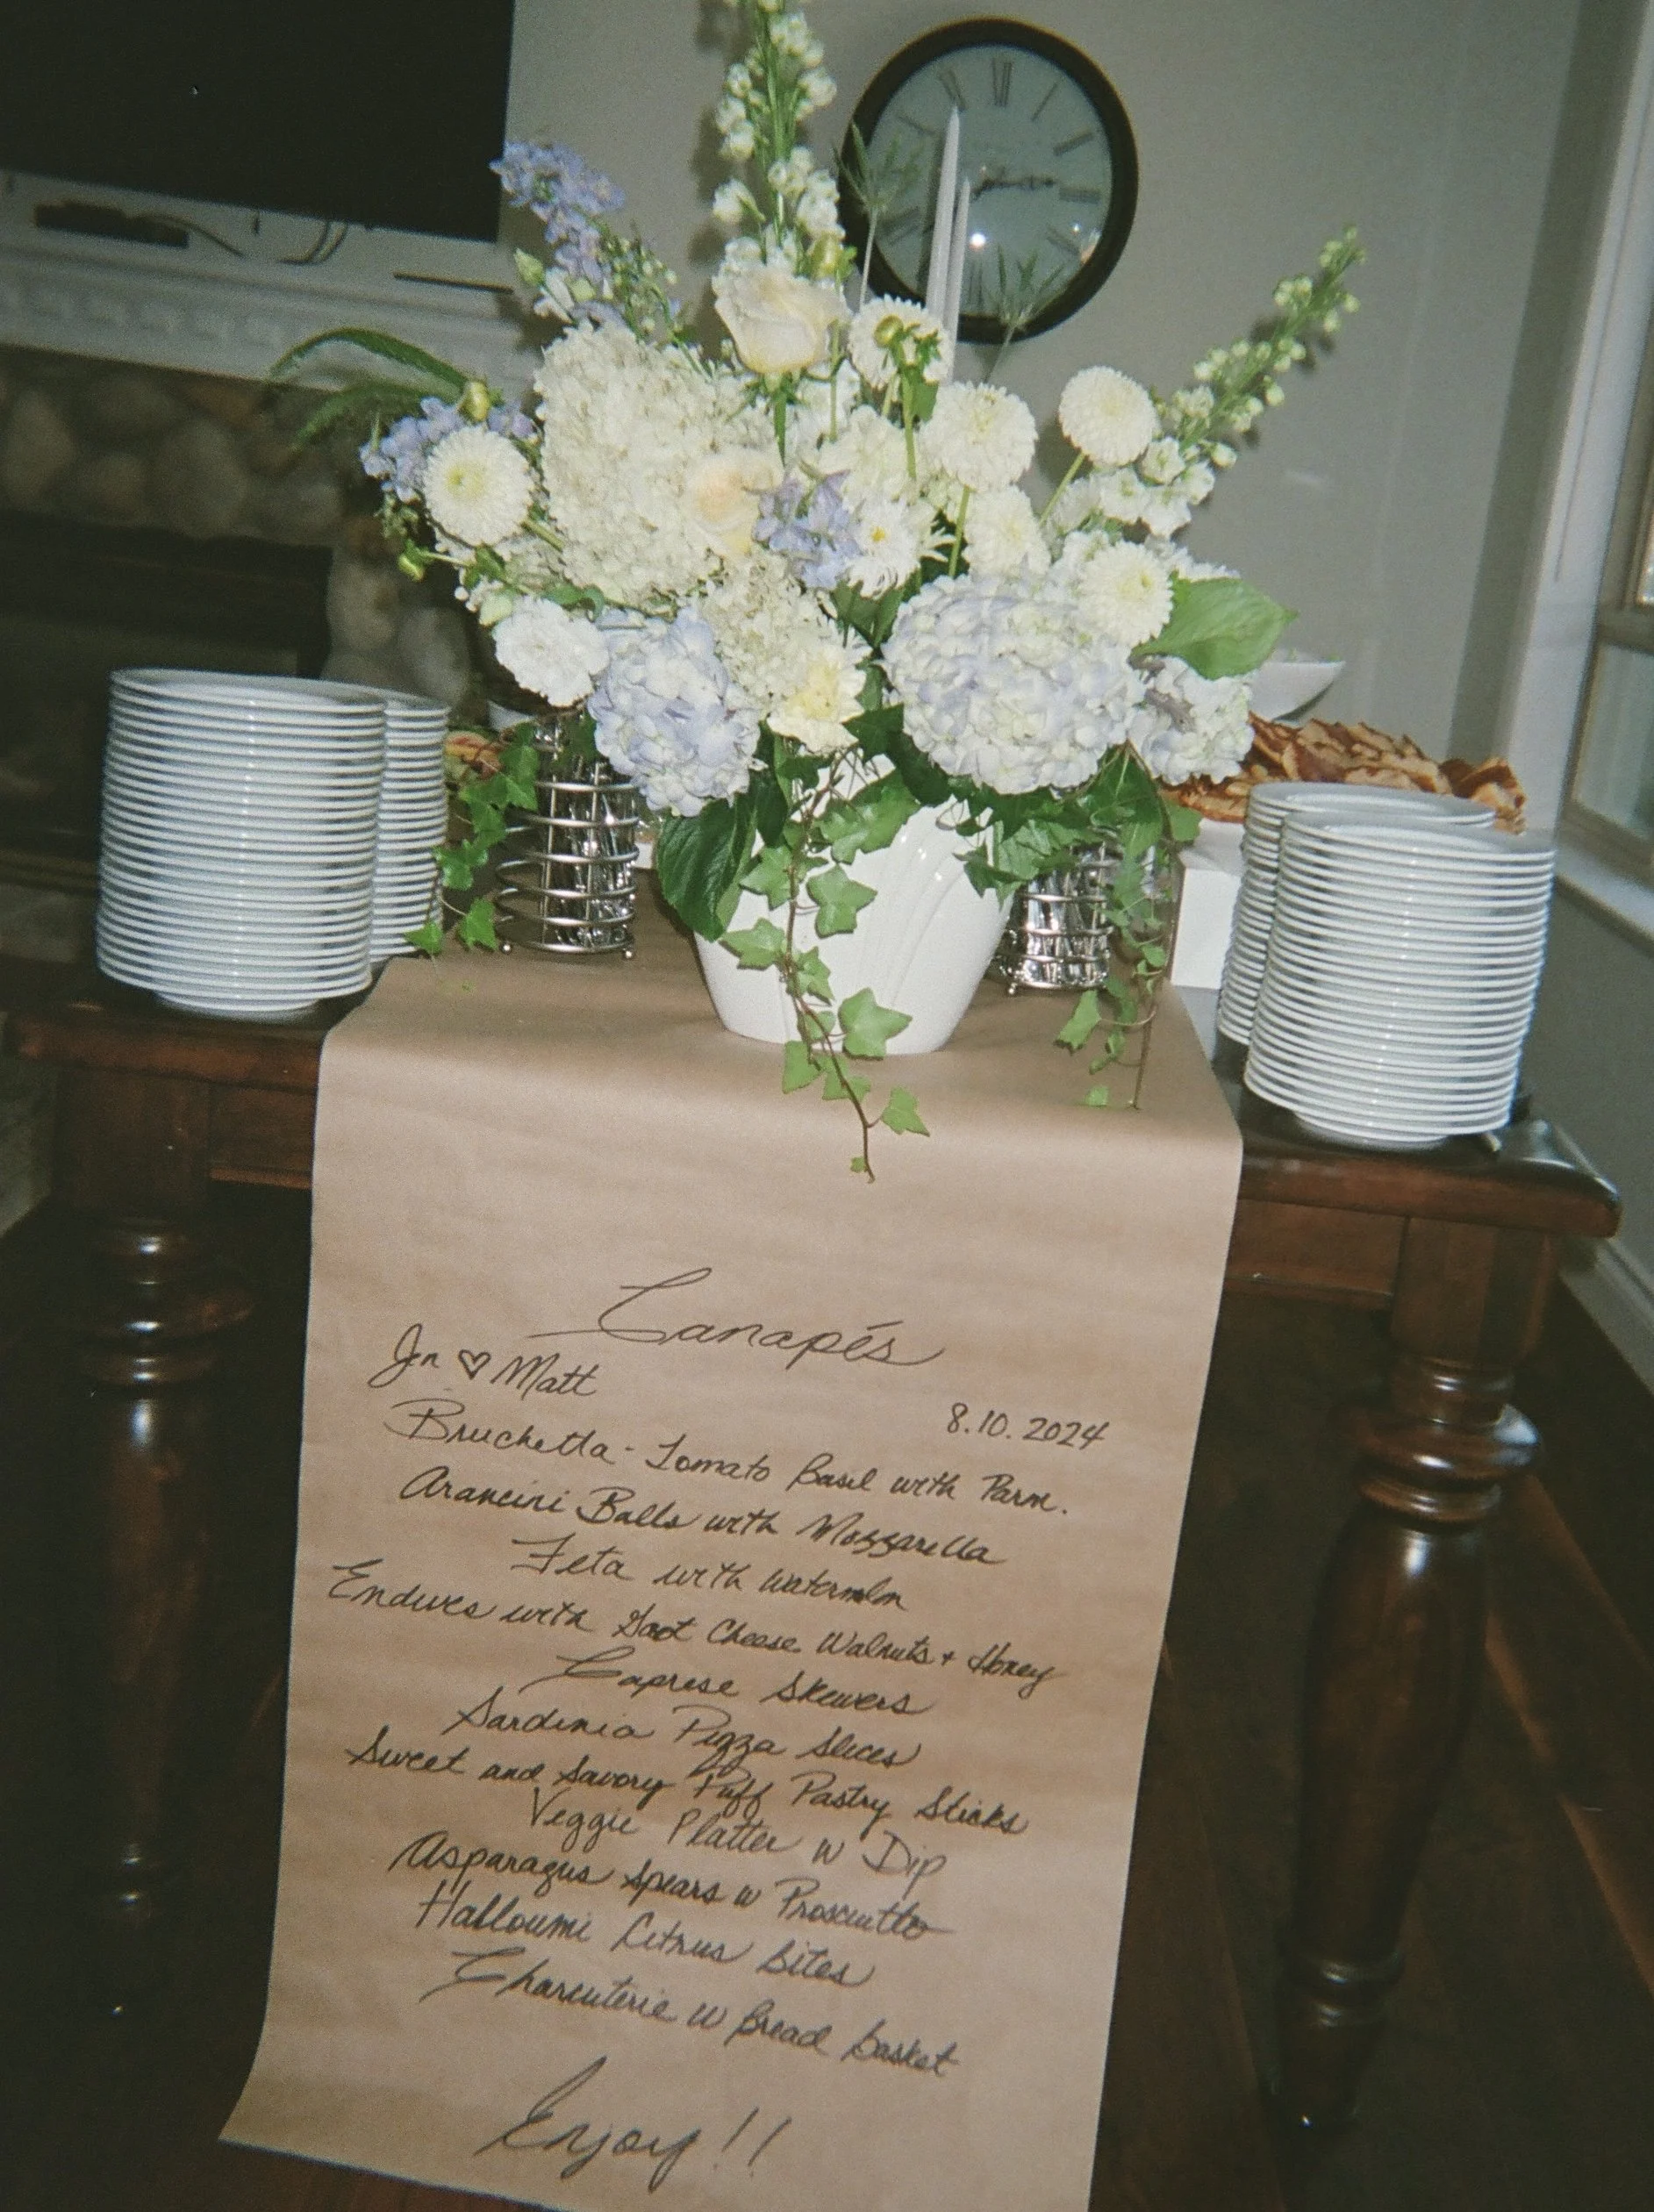 Canapés
Jen ♡ Matt
8.10.2024
Bruchetta - Tomato Basil with Parm.
Arancini Balls with Mozzarella
Feta with Watermln
Endives with Goat Cheese Walnuts + Honey
Caprese Skewers
Sardinia Pizza Slices
Sweet and Savory Puff Pastry Sticks
Veggie Platter w Dip
Asparagus Spears w Prosciutto
Halloumi Citrus bites
Charcuterie w Bread basket
Enjoy!!